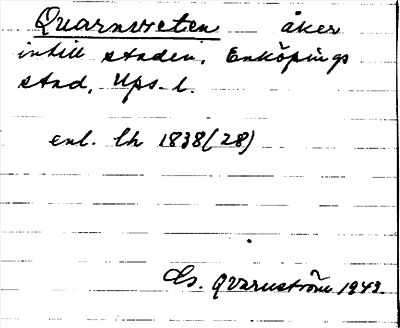 Quarnvreten åker
intill staden, Enköpings
stad, Ups. l.
enl. lh 1838 (28)
Es. Qvarnström 1943.